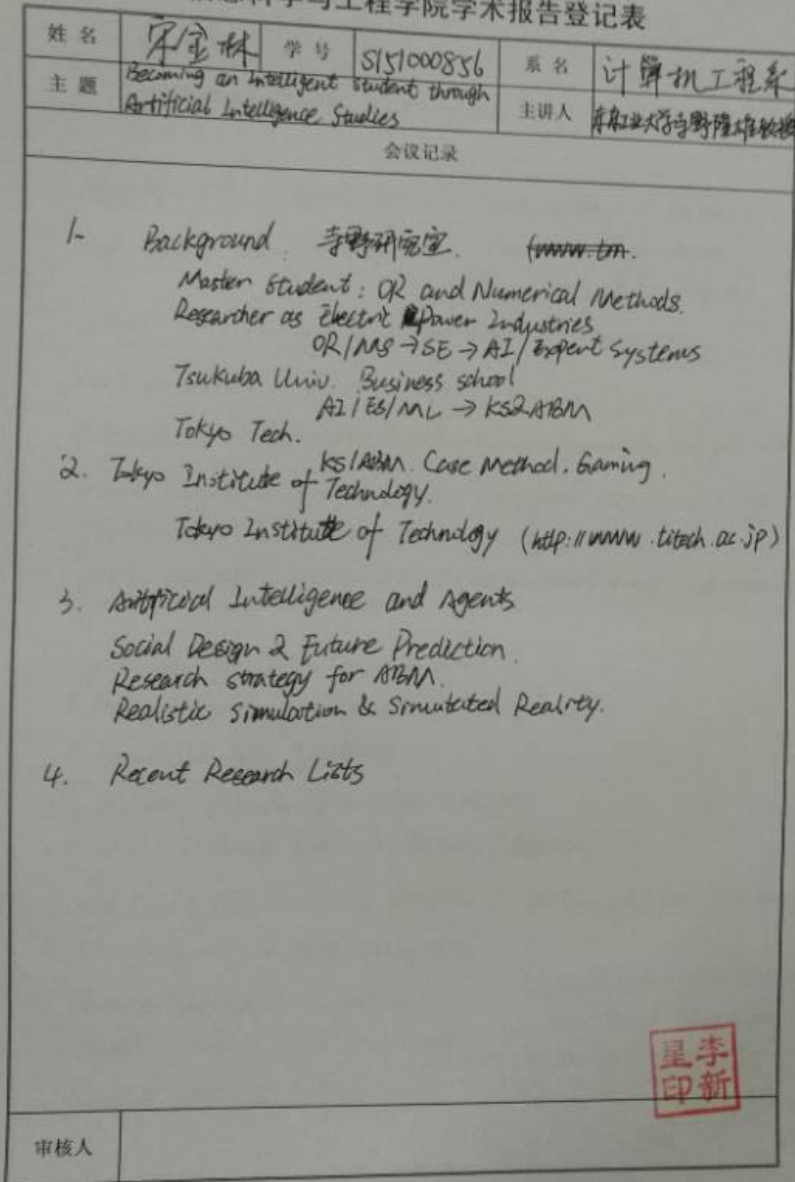 息科学与工程学院学术报告登记表
姓 名 宋宝林 学 号 S151000856 系 名 计算机工程系
主 题 Becoming an Intelligent student through
Artificial Intelligence Studies
主讲人 东京工业大学寺野隆雄教授
会议记录
1- Background. 寺野研究室. (www.tm.
Master Student: OR and Numerical Methods.
Researcher as Electric Power Industries
OR/MS → SE → AI/Expert Systems
Tsukuba Univ. Business school
AI/ES/ML → KS2ABM
Tokyo Tech.
KS/ABM. Case Method. Gaming.
2. Tokyo Institute of Technology.
Tokyo Institute of Technology (http://www.titech.ac.jp)
3. Artificial Intelligence and Agents
Social Design & Future Prediction.
Research strategy for ABM.
Realistic Simulation & Simulated Reality.
4. Recent Research Lists
李新
星印
审核人